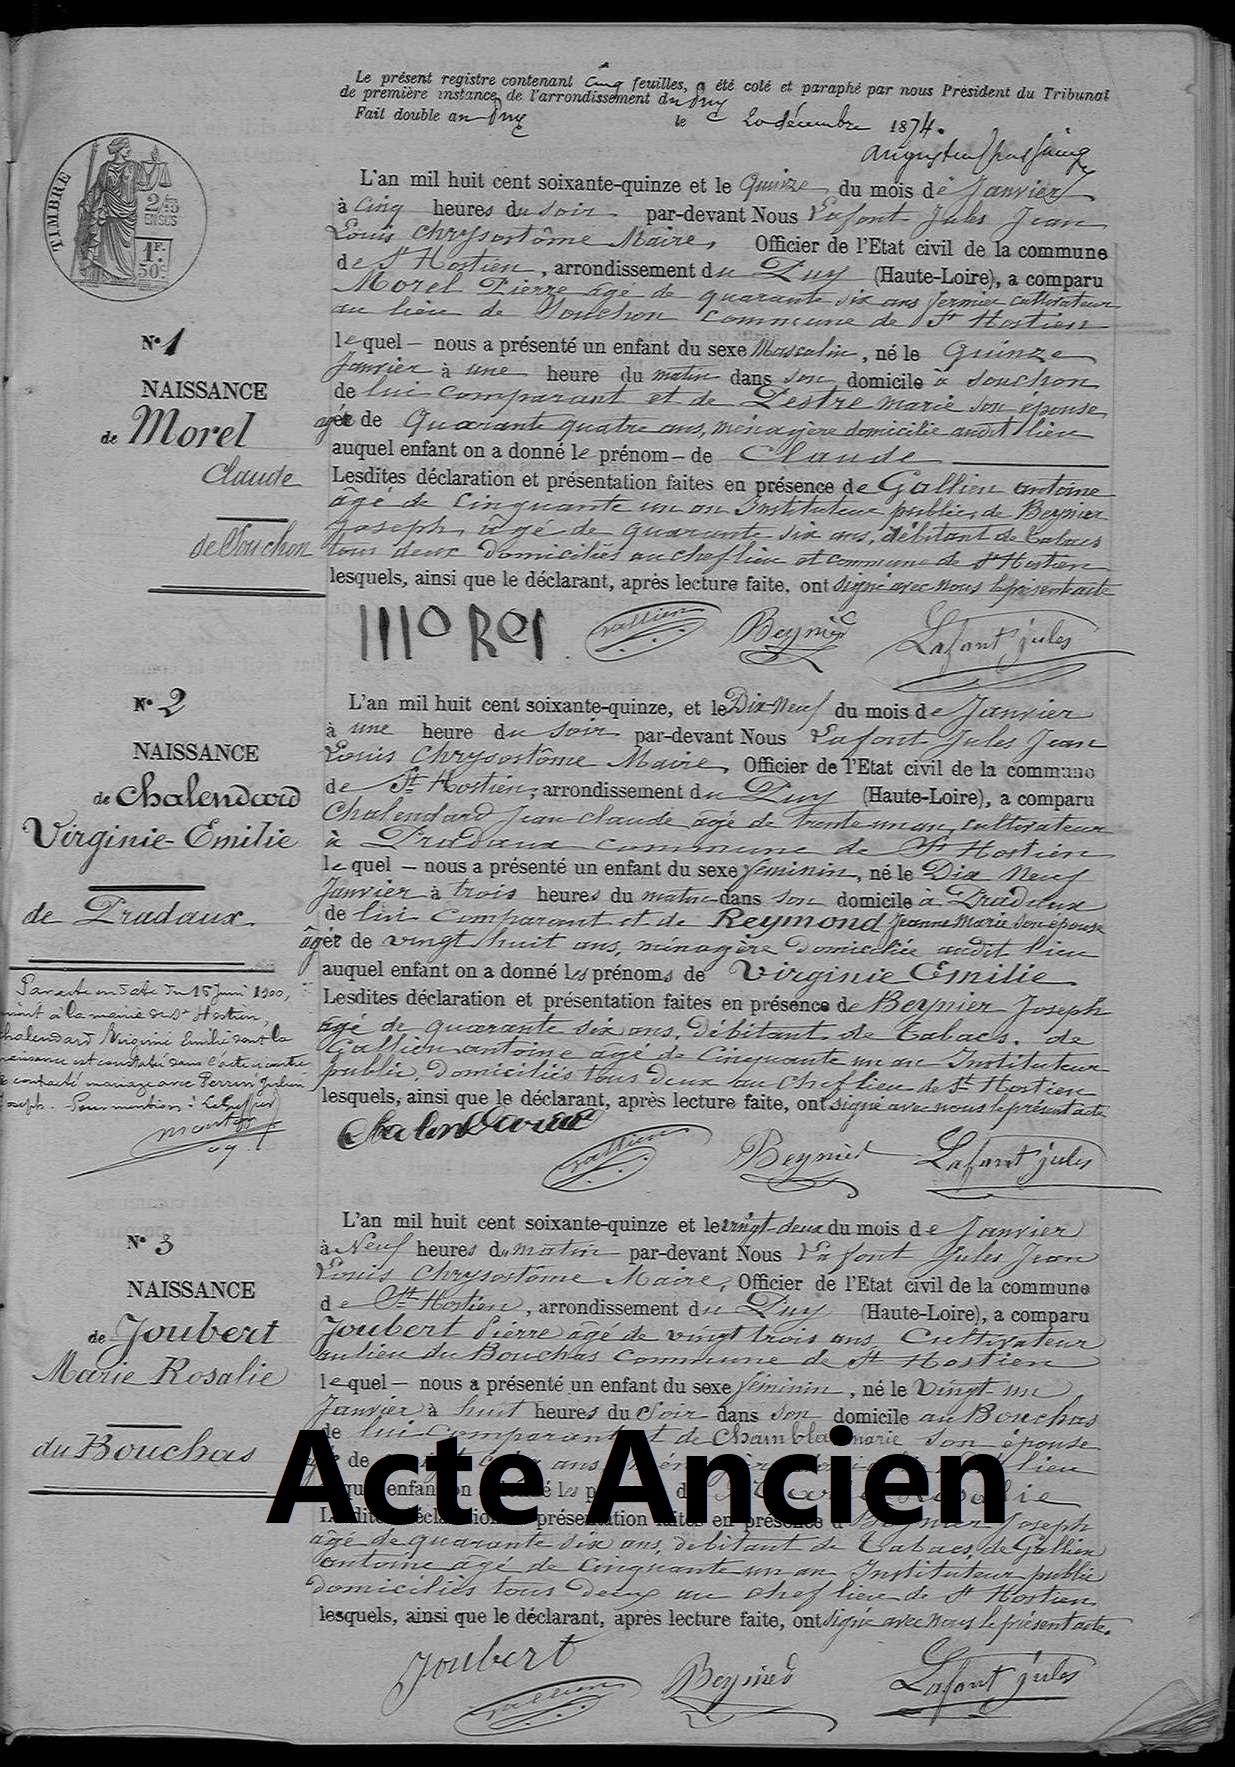 Le présent registre contenant Cinq feuilles, a été coté et paraphé par nous Président du Tribunal
de première instance de l'arrondissement du Puy
Fait double au Puy le 20 décembre 1874.
TIMBRE
2/10 EN SUS
1F. 50c
L'an mil huit cent soixante-quinze et le Quinze du mois de Janvier
à Cinq heures du Soir par-devant Nous Lafont Jules Jean
Louis Chrysostôme Maire, Officier de l'Etat civil de la commune
de St Hostien, arrondissement du Puy (Haute-Loire), a comparu
Morel Pierre âgé de quarante six ans fermier cultivateur
au lieu de Souchon commune de St Hostien
N° 1
NAISSANCE
de Morel
Claude
de Souchon
lequel — nous a présenté un enfant du sexe Masculin, né le Quinze
Janvier à une heure du matin dans son domicile à Souchon
de lui comparant et de Pestre marie son épouse
âgée de Quarante quatre ans, ménagère domicilié audit lieu
auquel enfant on a donné le prénom — de Claude
Lesdites déclaration et présentation faites en présence de Gallien antoine
âgé de Cinquante un an Instituteur public, de Beynier
Joseph, âgé de quarante six ans, débitant de tabacs
tous deux domiciliés au chef lieu et commune de St Hostien
lesquels, ainsi que le déclarant, après lecture faite, ont signé avec nous le présent acte
MOREL Gallien Beynier Lafont jules
N° 2
NAISSANCE
de Chalendard
Virginie-Emilie
de Pradaux
L'an mil huit cent soixante-quinze, et le Dix-Neuf du mois de Janvier
à une heure du Soir par-devant Nous Lafont Jules Jean
Louis Chrysostôme Maire, Officier de l'Etat civil de la commune
de St Hostien, arrondissement du Puy (Haute-Loire), a comparu
Chalendard Jean Claude âgé de trente un an, cultivateur
à Pradaux commune de St Hostien
lequel — nous a présenté un enfant du sexe féminin, né le Dix Neuf
Janvier à trois heures du matin dans son domicile à Pradaux
de lui comparant et de Reymond Jeanne Marie son épouse
âgée de vingt huit ans, ménagère domiciliée audit lieu
auquel enfant on a donné les prénoms de Virginie Emilie
Lesdites déclaration et présentation faites en présence de Beynier Joseph
âgé de quarante six ans, débitant de Tabacs. de
Gallien antoine âgé de Cinquante un an Instituteur
public, domiciliés tous deux au chef lieu de St Hostien
lesquels, ainsi que le déclarant, après lecture faite, ont signé avec nous le présent acte
Par acte en date du 15 Juin 1900,
à la mairie de St Hostien,
Chalendard Virginie Emilie dont la
naissance est constatée dans l'acte ci contre
a contracté mariage avec Perrin Julien
Joseph. Pour mention : Le Greffier
Chalendard Gallien Beynier Lafont jules
N° 3
NAISSANCE
de Joubert
Marie Rosalie
du Bouchas
L'an mil huit cent soixante-quinze et le vingt-deux du mois de Janvier
à Neuf heures du matin par-devant Nous Lafont Jules Jean
Louis Chrysostôme Maire, Officier de l'Etat civil de la commune
de St Hostien, arrondissement du Puy (Haute-Loire), a comparu
Joubert Pierre âgé de vingt trois ans, Cultivateur
au lieu du Bouchas commune de St Hostien
lequel — nous a présenté un enfant du sexe féminin, né le Vingt-un
Janvier à huit heures du Soir dans son domicile au Bouchas
de lui comparant et de marie son épouse
de ans lieu
enfant on Rosalie
Acte Ancien
présentation faites en présence de Beynier Joseph
âgé de quarante six ans, débitant de Tabacs, de Gallien
antoine âgé de Cinquante un an Instituteur public
domiciliés tous deux au chef lieu de St Hostien
lesquels, ainsi que le déclarant, après lecture faite, ont signé avec nous le présent acte.
Joubert Beynier Lafont jules
Gallien